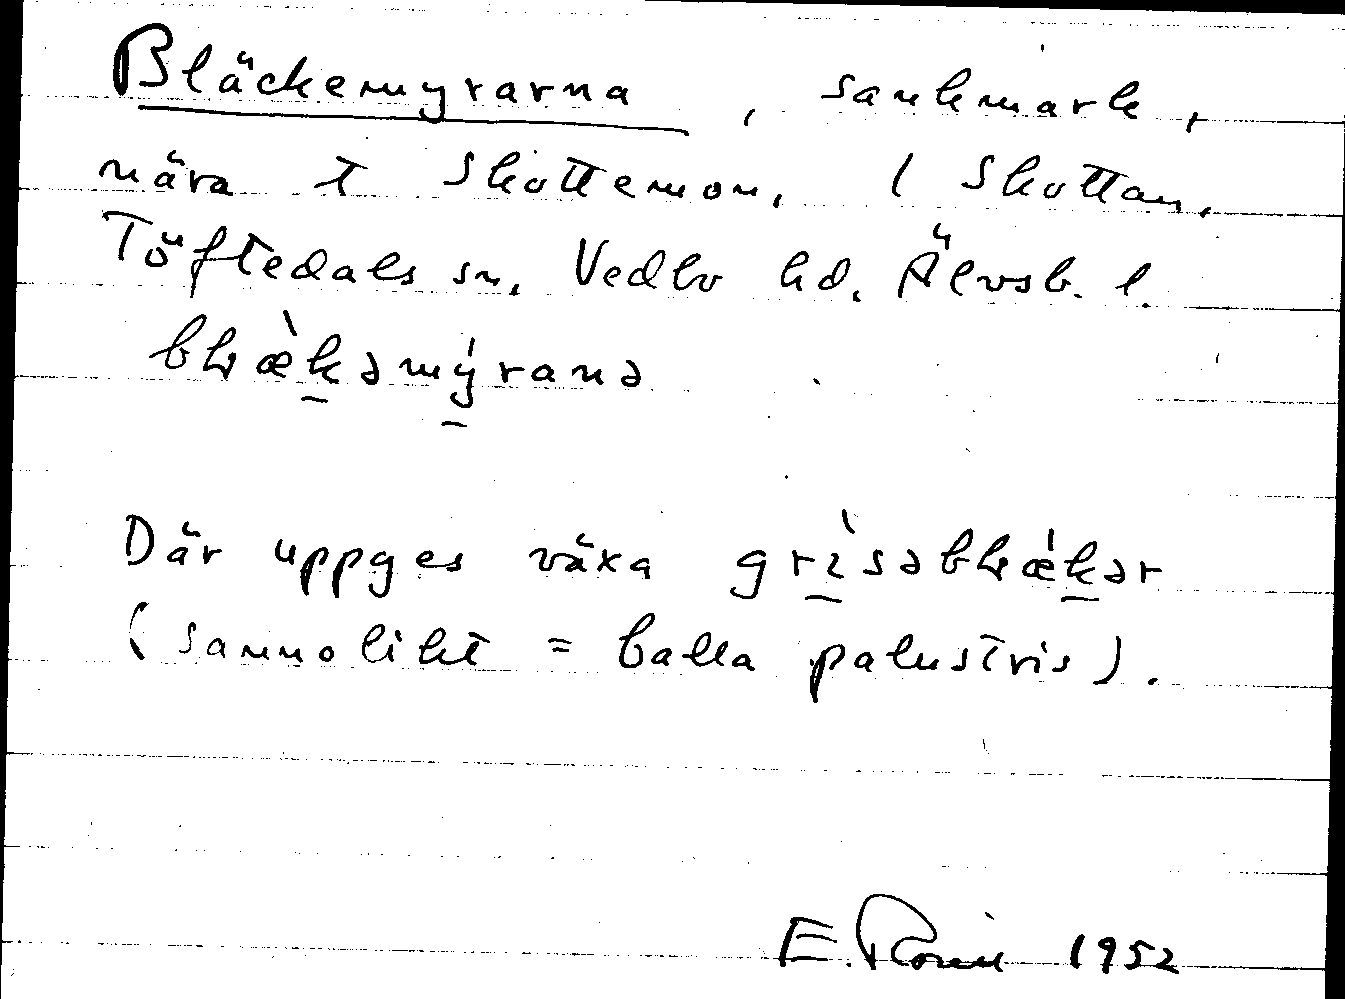 Bläckemyrarna, sankmark,
nära t Skottemon, (Skottan,
Töftedals sn, Vedbo hd. Älvsb. l.
blæ̀kəmy̆́ranə
Där uppges växa grìsəblǽkər
(sannolikt = Calla palustris).
E. 1952